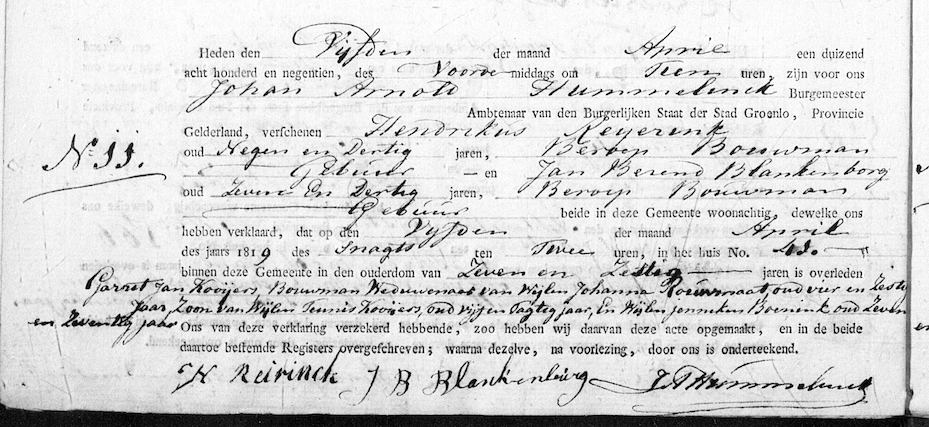 Heden den Vyfden der maand April een duizend
acht honderd en negentien, des Voorde middags om Tien uren, zijn voor ons
Johan Arnold Hummelinck Burgemeester
Ambtenaar van den Burgerlijken Staat der Stad Groenlo, Provincie
Gelderland, verschenen Hendrikus Reyerink
No 11. oud Negen en Dertig jaren, Beroep Bouwman
Gebuur en Jan Berend Blankenborg
oud Zeven En Dertig jaren, Beroep Bouwman
Gebuur beide in deze Gemeente woonachtig, dewelke ons
hebben verklaard, dat op den Vyfden der maand April
des jaars 1819 des Snagts ten Twee uren, in het huis No.
binnen deze Gemeente in den ouderdom van Zeven en Zestig jaren is overleden
Garret Jan Kooijers, Bouwman Weduwenaar van Wijlen Johanna Rouwmaat oud vier en Zestig
Jaar, Zoon van Wijlen Teunis Kooijers, oud vijf en Tagtig jaar, En Wijlen Jenneken Boenink oud Zeven
en Zeventig jaar Ons van deze verklaring verzekerd hebbende, zoo hebben wij daarvan deze acte opgemaakt, en in de beide
daartoe bestemde Registers overgeschreven; waarna dezelve, na voorlezing, door ons is onderteekend.
H Reirinck J B Blankenburg JA Hummelinck